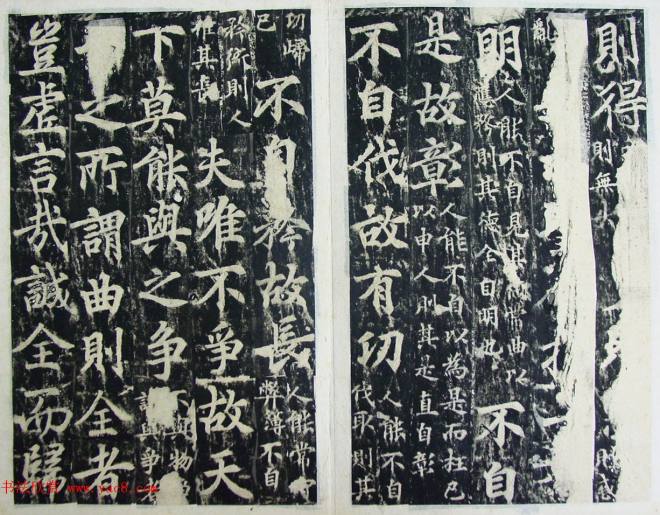 則得則無
亂
明人能不自見其常曲以則其德全自明也不自
是故章人能不自以為是而枉己以申人則其是直自彰
不自伐故有功人能不自伐取則其
功歸己不自矜故長人能常守弊薄不自
矜衒則人推其長夫唯不爭故天
下莫能與之爭不與物與爭
之所謂曲則全者
豈虛言哉誠全而歸
www.yac8.com